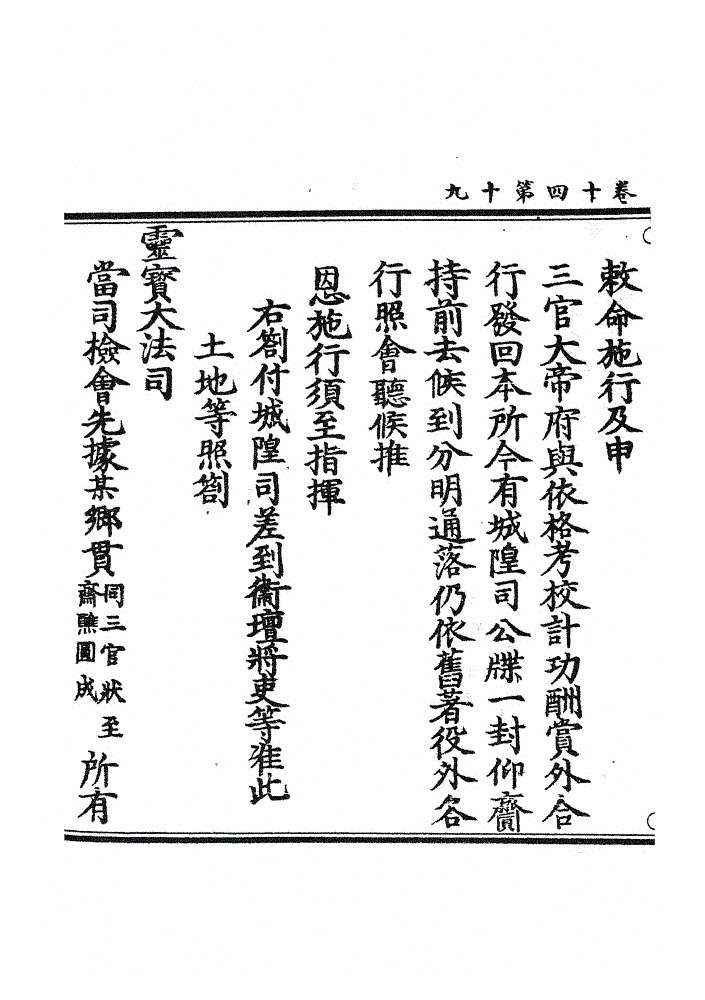 卷十四第十九
敕命施行及申
三官大帝府與依格考校計功酬賞外合
行發回本所今有城隍司公牒一封仰齎
持前去候到分明通落仍依舊著役外各
行照會聽候推
恩施行須至指揮
右劄付城隍司差到衛壇將吏等准此
土地等照劄
靈寶大法司
當司檢會先據某鄉貫同三官狀至齋醮圓成所有